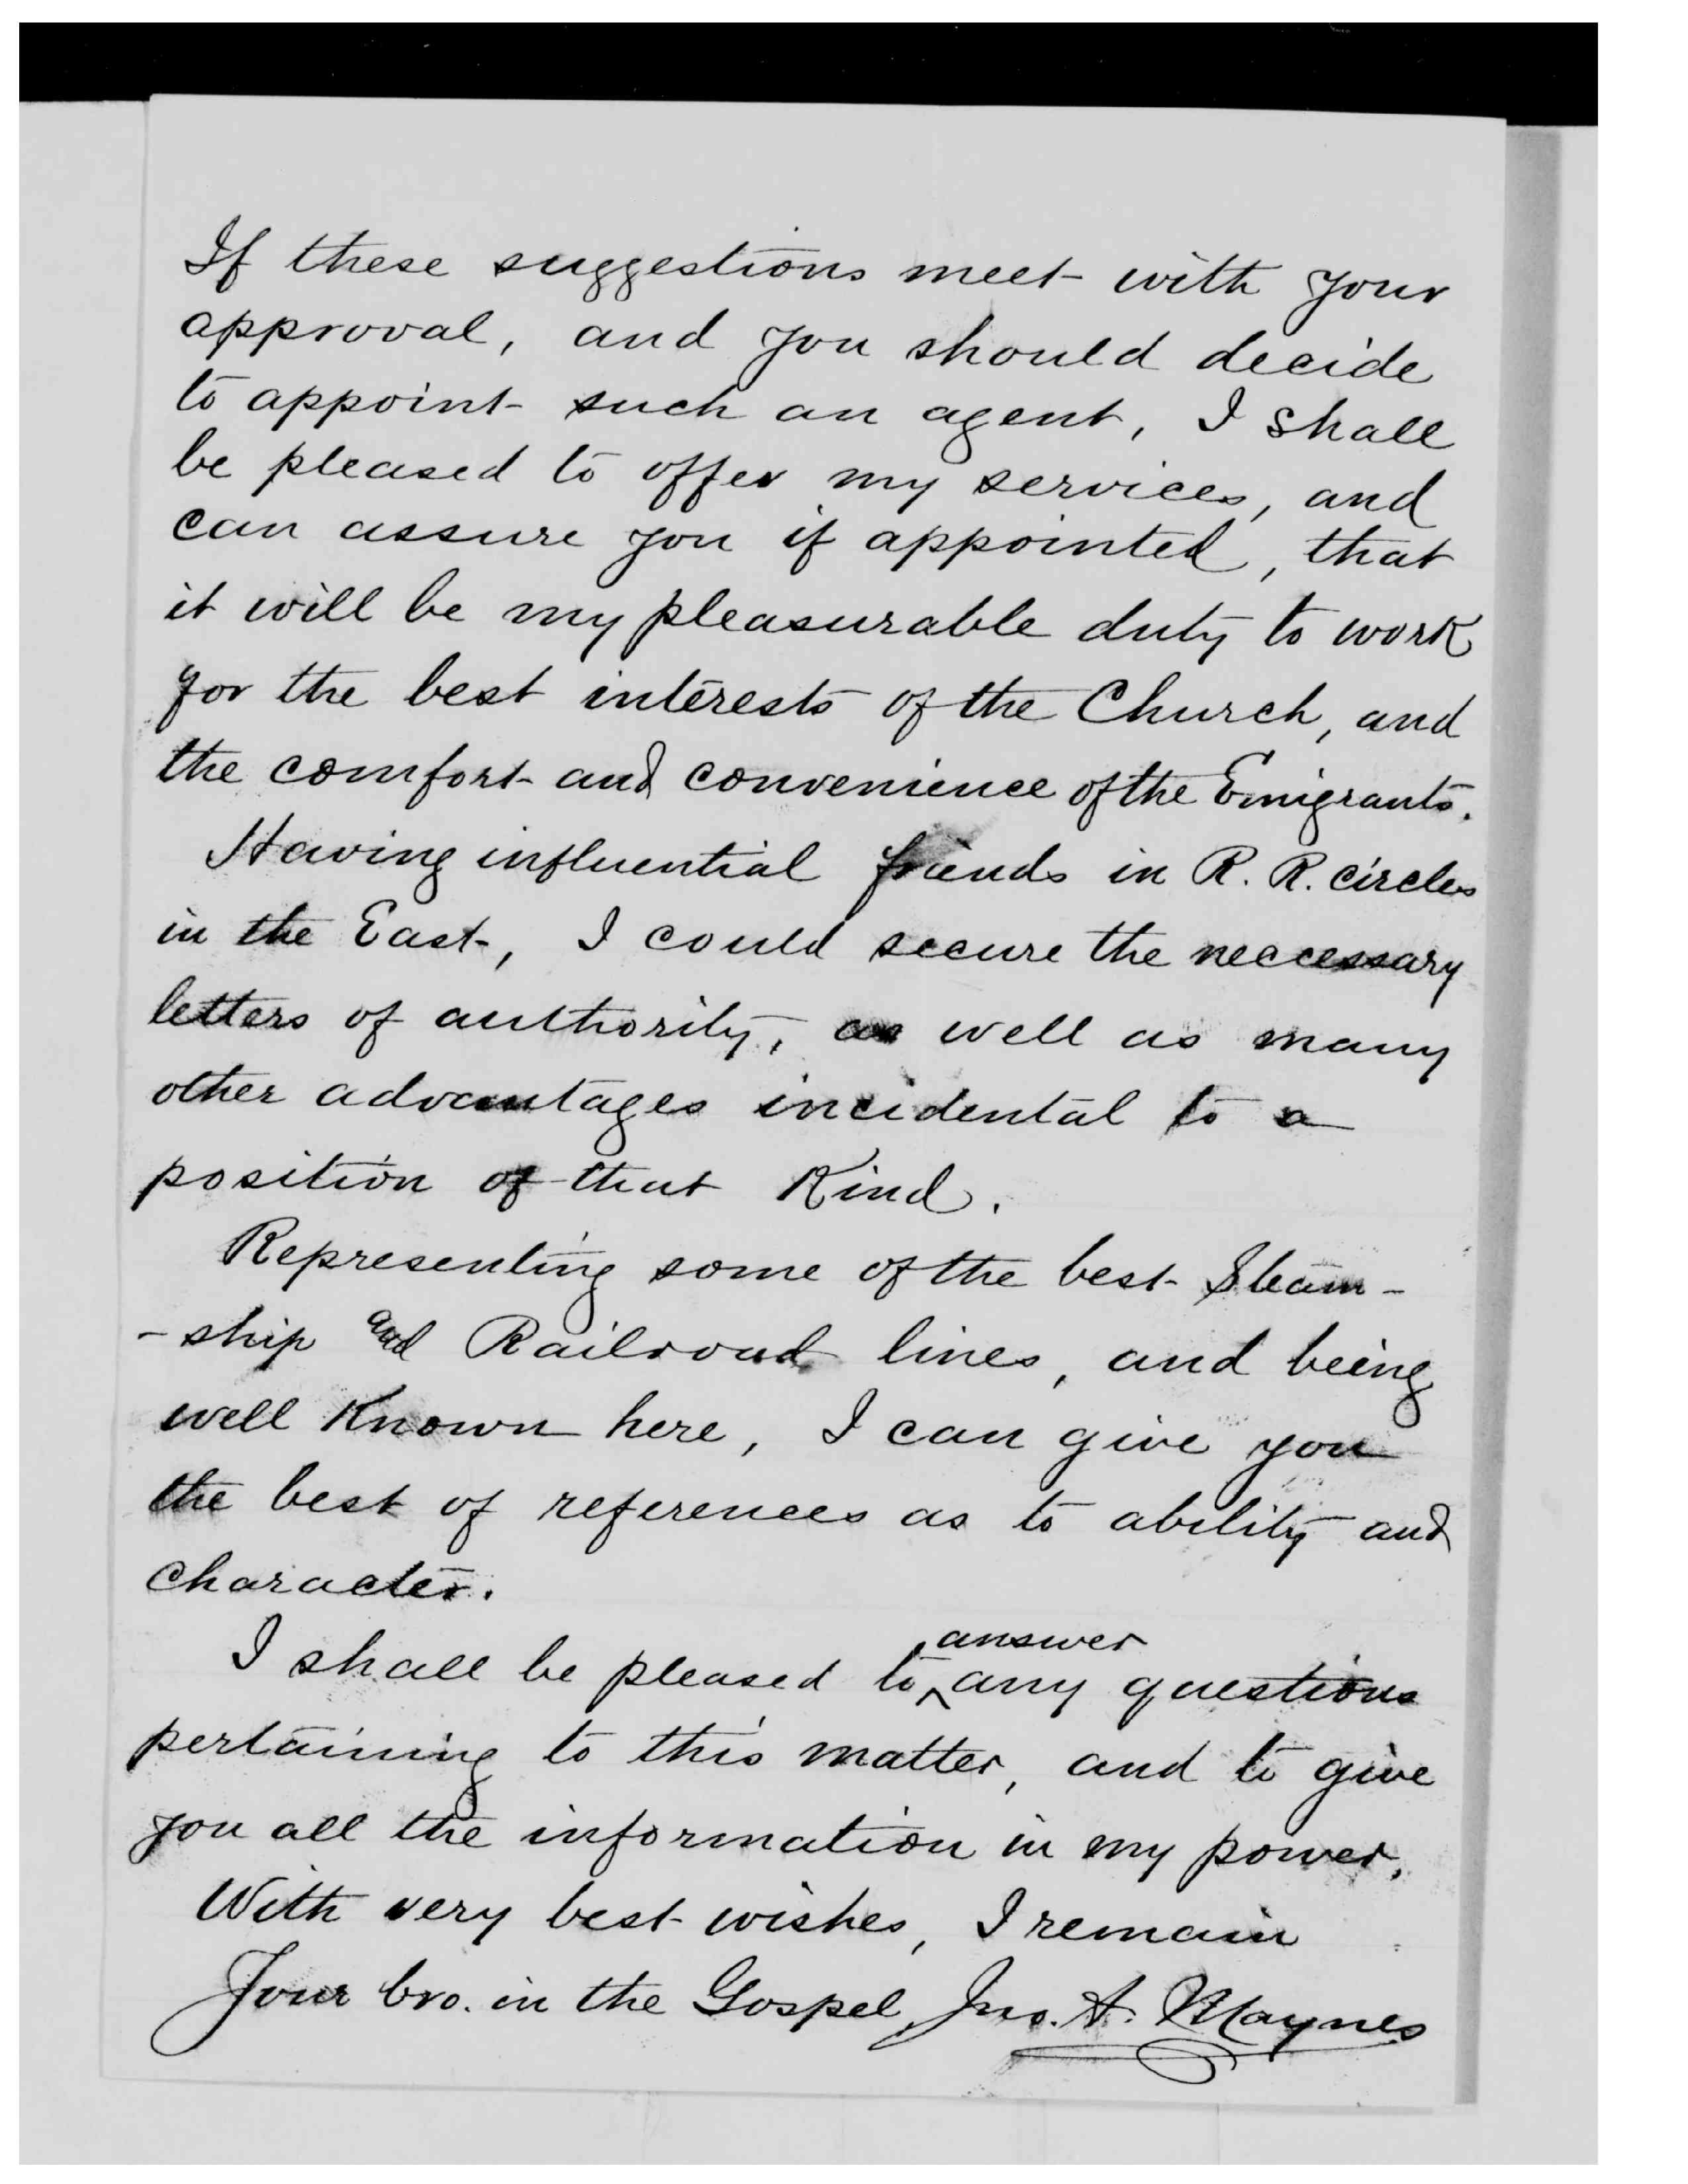 If these suggestions meet with your
approval, and you should decide
to appoint such an agent, I shall
be pleased to offer my services, and
can assure you if appointed, that
it will be my pleasurable duty to work
for the best interests of the Church, and
the comfort and convenience of the Emigrants.
Having influential friends in R. R. circles
in the East, I could secure the neccessary
letters of authority, as well as many
other advantages incidental to a
position of that Kind.
Representing some of the best Steam-
-ship and Railroad lines, and being
well Known here, I can give you
the best of references as to ability and
character.
I shall be pleased to answer any questions
pertaining to this matter, and to give
you all the information in my power.
With very best wishes, I remain
Your bro. in the Gospel, Jno. A. Maynes